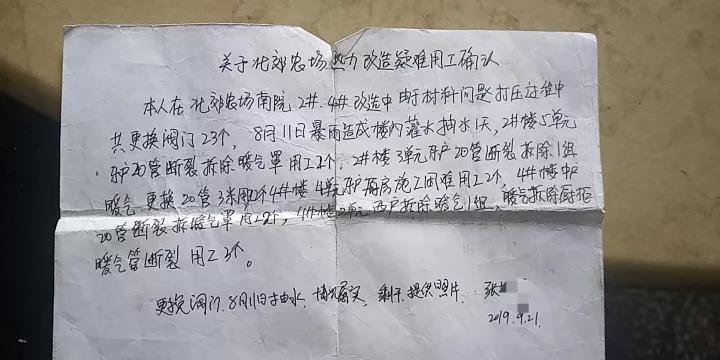 关于北郊农场热力改造疑难用工确认
本人在北郊农场南院2#.4#改造中由于材料问题打压过程中
共更换阀门23个，8月11日暴雨造成楼内灌水抽水1天，2#楼5单元
东户20管断裂拆除暖气罩用工2个，2#楼3单元东户20管断裂拆除1组
暖气更换20管3米用2个4#楼4单元东户厨房施工困难用工2个，4#楼中户
20管断裂拆暖气罩用2个，4#楼2单元西户拆除暖气1组，暖气拆除厨柜
暖气管断裂用工3个。
更换阀门.8月11日抽水，情况属实，剩下提供照片.张
2019.9.21.